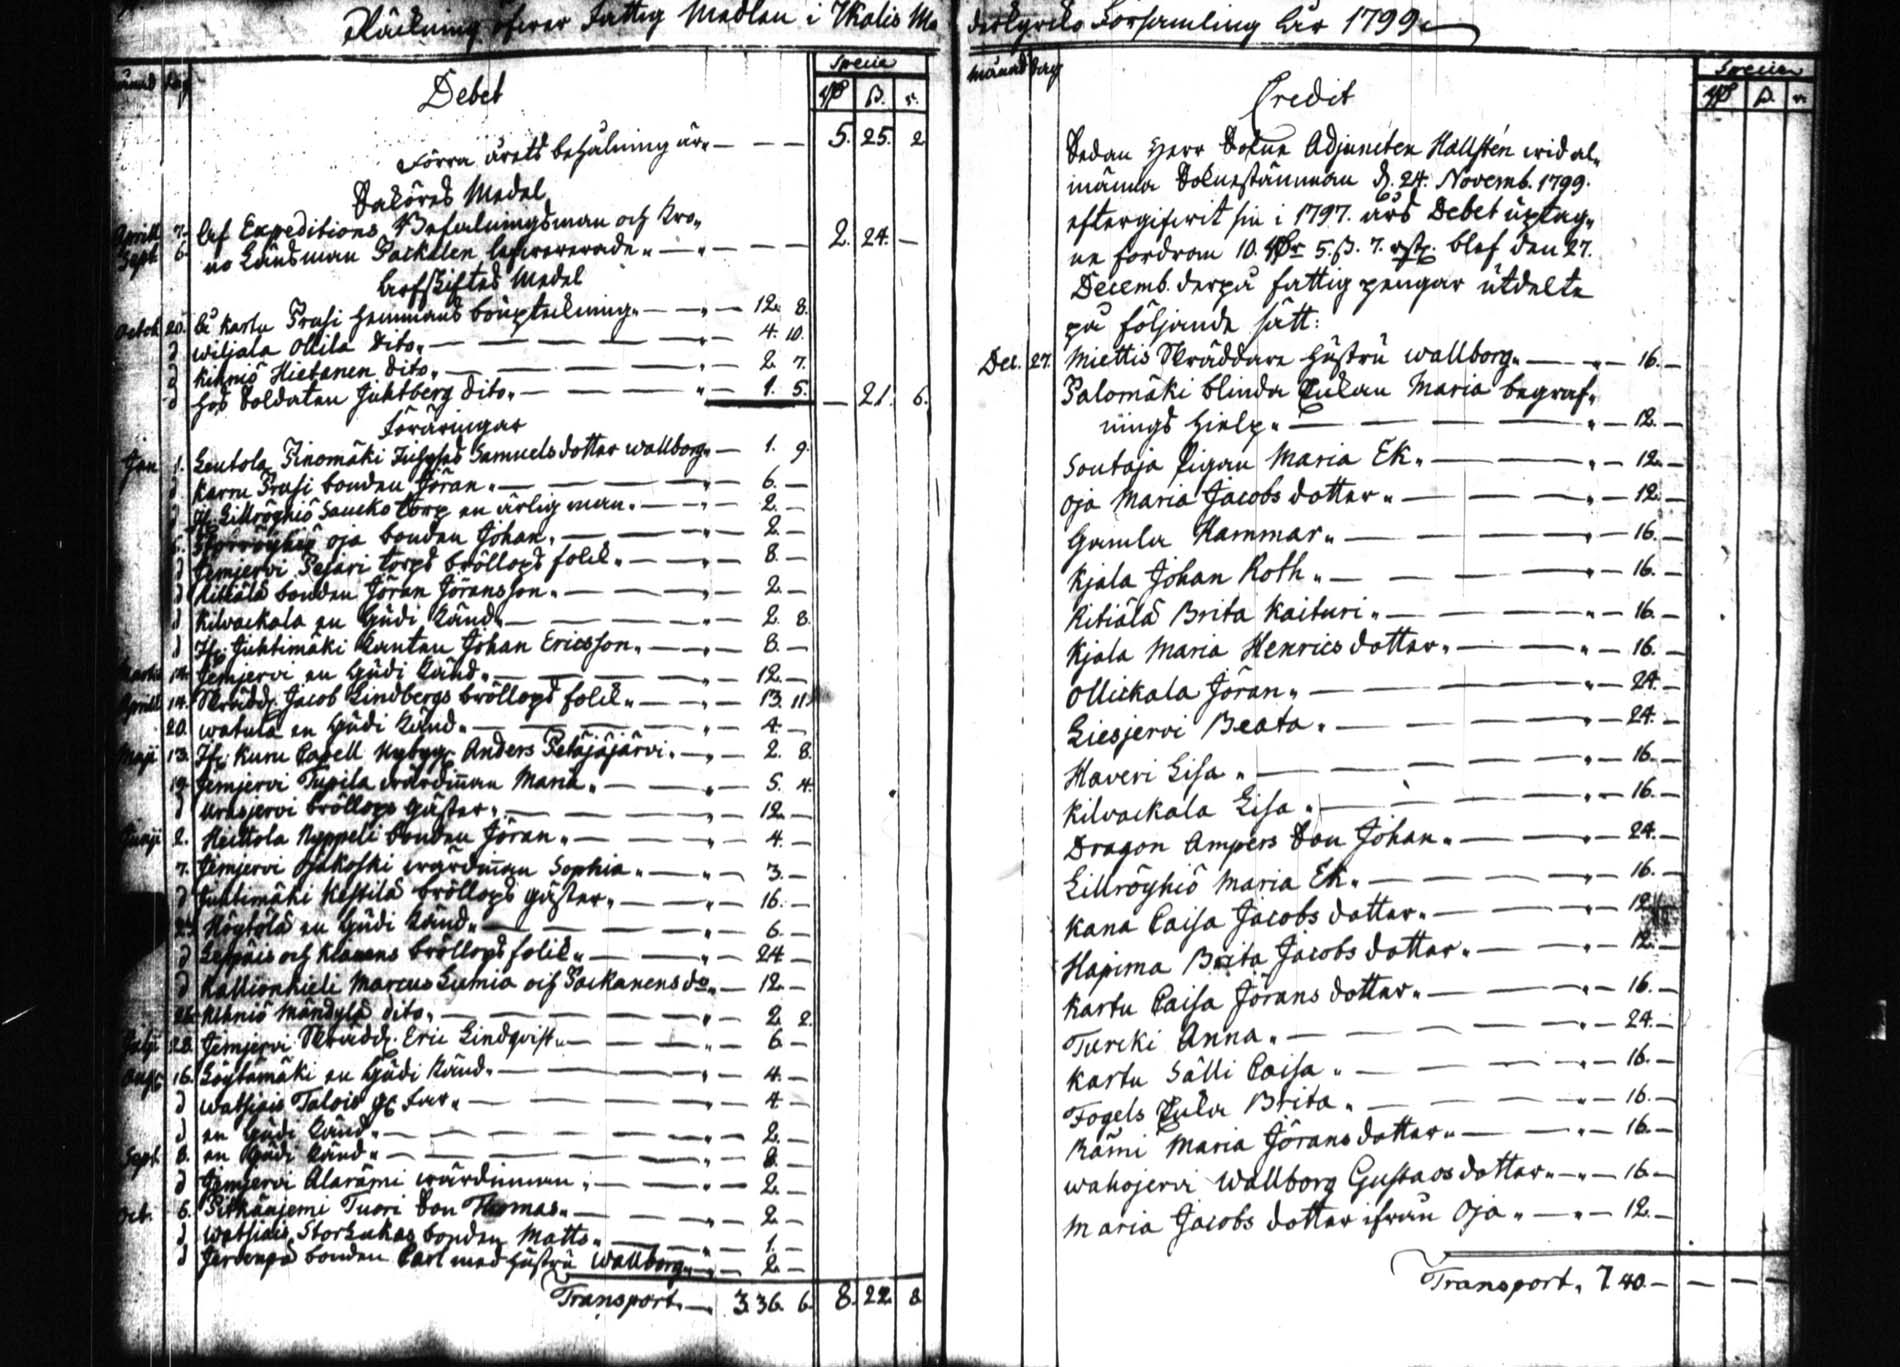 Räkning öfver Fattig Medlen i Ikalis Mo
derkyrko Församling för 1799
månad dag
Debet
Specie
ß. r.
Förra årets behålning är, 5. 25. 2
Saköres Medel
Aprill 7. Af Expeditions Befalningsman och Kro„
Sept. 6. no Länsman Packalen lefwererade 2. 24. —
Arfskiftes Medel
Octob. 20. Å Kartu Prusi hemmans bouptekning 12. 8.
d wiljala Ollila dito 4. 10.
d Kihniö Hietanen dito 2. 7.
d hos Soldaten Juhtberg dito 1. 5. — 21. 6.
Föräringar
Jan. 1. Leutola Pinomäki Samuelsdotter wallborg 1. 9.
d Karru Prusi bonden Jöran 6. —
d Lillröyhiö Saucko torp en ärlig man 2. —
d oja bonden Johan 2. —
d Jemjervi Pejari torps bröllops folck 8. —
d Kitiälä bonden Jöran Jöransson 2. —
d Kilvackala en Gudi känd 2. 8.
d Juhtimäki Johan Ericsson 8. —
14. Jemjervi en Gudi känd 12. —
Aprill 14. Skrädd. Jacob Lindbergs bröllops folck 13. 11
20. watula en Gudi känd 4. —
Maji 13. Kuru Capell Nybygg. Anders Petäjäjärvi 2. 8.
19. Jemjervi Tupila wärdinnan Maria 5. 4.
d bröllops gäster 12. —
Junji 2. Heittola Nyppeli bonden Jöran 4. —
7. Jemjervi Ojakoski wärdinnan Sophia 3. —
d Juhtimäki Kessilä bröllops gäster 16. —
24. Röytölä en Gudi känd 6. —
d Leppäis och Klauens bröllops folck 24 —
d Kallionkieli Marcus Lumia och Packanens do 12. —
26. Kihniö Mändylä dito 2. 2.
Julji 28. Jemjervi Skrädd. Eric Lindqvist 6 —
Aug. 16. Löytämäki en Gudi känd 4. —
d watsiais Talois 4 —
d en Gudi känd 2. —
Sept. 8. en Gudi känd 8. —
d Jemjervi Alarämi wärdinnan 2. —
Oct. 6. Pitkänjemi Tuori Son Thomas 2. —
d watsiais Storlukas bonden Matts 1. —
d Jervenpä bonden Carl med hustru Wallborg 2 —
Transport 3. 36. 6. 8. 22. 8
månad dag
Credit
Specie
ß. r.
Sedan Herr Sokne Adjuncten Hallstén wid al„
männa Soknestämman d. 24. Novemb. 1799.
eftergifvit sin i 1797. års Debet uptag„
ne fordran 10. 5. ß. 7. blef den 27.
Decemb. derpå fattig pengar utdelte
på följande sätt:
Dec. 27. Miettis Skräddare hustru wallborg 16. —
Palomäki blinda Pikan Maria begraf„
nings hielp 12. —
Soutaja Pigan Maria Ek 12. —
Oja Maria Jacobsdotter 12. —
Gamla Hammar 16. —
Kjala Johan Roth 16. —
Kitiälä Brita Kaituri 16. —
Kjala Maria Henricsdotter 16. —
Ollickala Jöran 24. —
Liesjervi Beata 24. —
Haveri Lisa 16. —
Kilvackala Lisa 16. —
Dragon Ampers Son Johan 24. —
Lillröyhiö Maria Ek 16. —
Kana Caisa Jacobsdotter 12
Hapima Brita Jacobsdotter 12. —
Kartu Caisa Jöransdotter 16. —
Turcki Anna 24. —
Kartu Sälli Caisa 16. —
Fogels Brita 16. —
Rämi Maria Jöransdotter 16. —
wahojervi Wallborg Gustavsdotter 16. —
Maria Jacobsdotter ifrån Oja 12. —
Transport 7. 40. — — — —